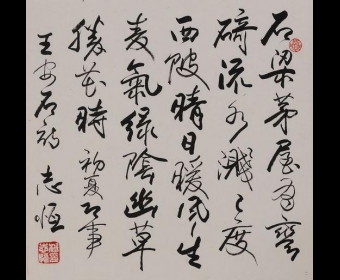 石梁茅屋有彎
碕流水濺〻度
西陂晴日暖風生
麦氣綠陰幽草
勝花時 初夏即事
王安石詩 志恒